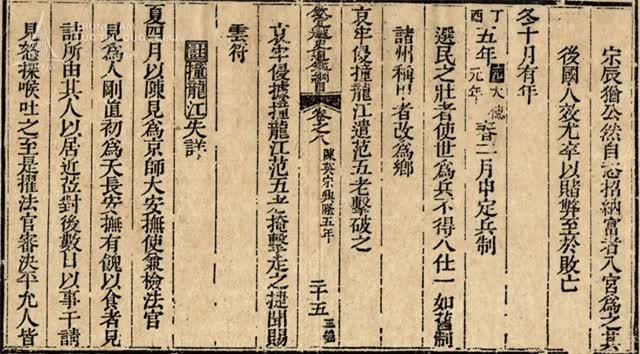 宗辰猶公然自恣招納富者入宮爲之其
後國人效尤卒以賭弊至於敗亡
冬十月有年
丁酉五年元大德元年春二月申定兵制
選民之壯者使世爲兵不得入仕一如舊制
諸州稱甲者改爲鄉
哀牢侵撞龍江遣范五老擊破之
欽定越史通鑑綱目 卷之八 陳英宗興隆五年 二十五 正編
哀牢侵據撞龍江范五老掩擊走之捷聞賜
雲符
註撞龍江失詳
夏四月以陳見爲京師大安撫使兼檢法官
見爲人剛直初爲天長安撫有餽以食者見
詰所由其人以居近蒞對後數日以事干請
見怒探喉吐之至是擢法官審決平允人皆